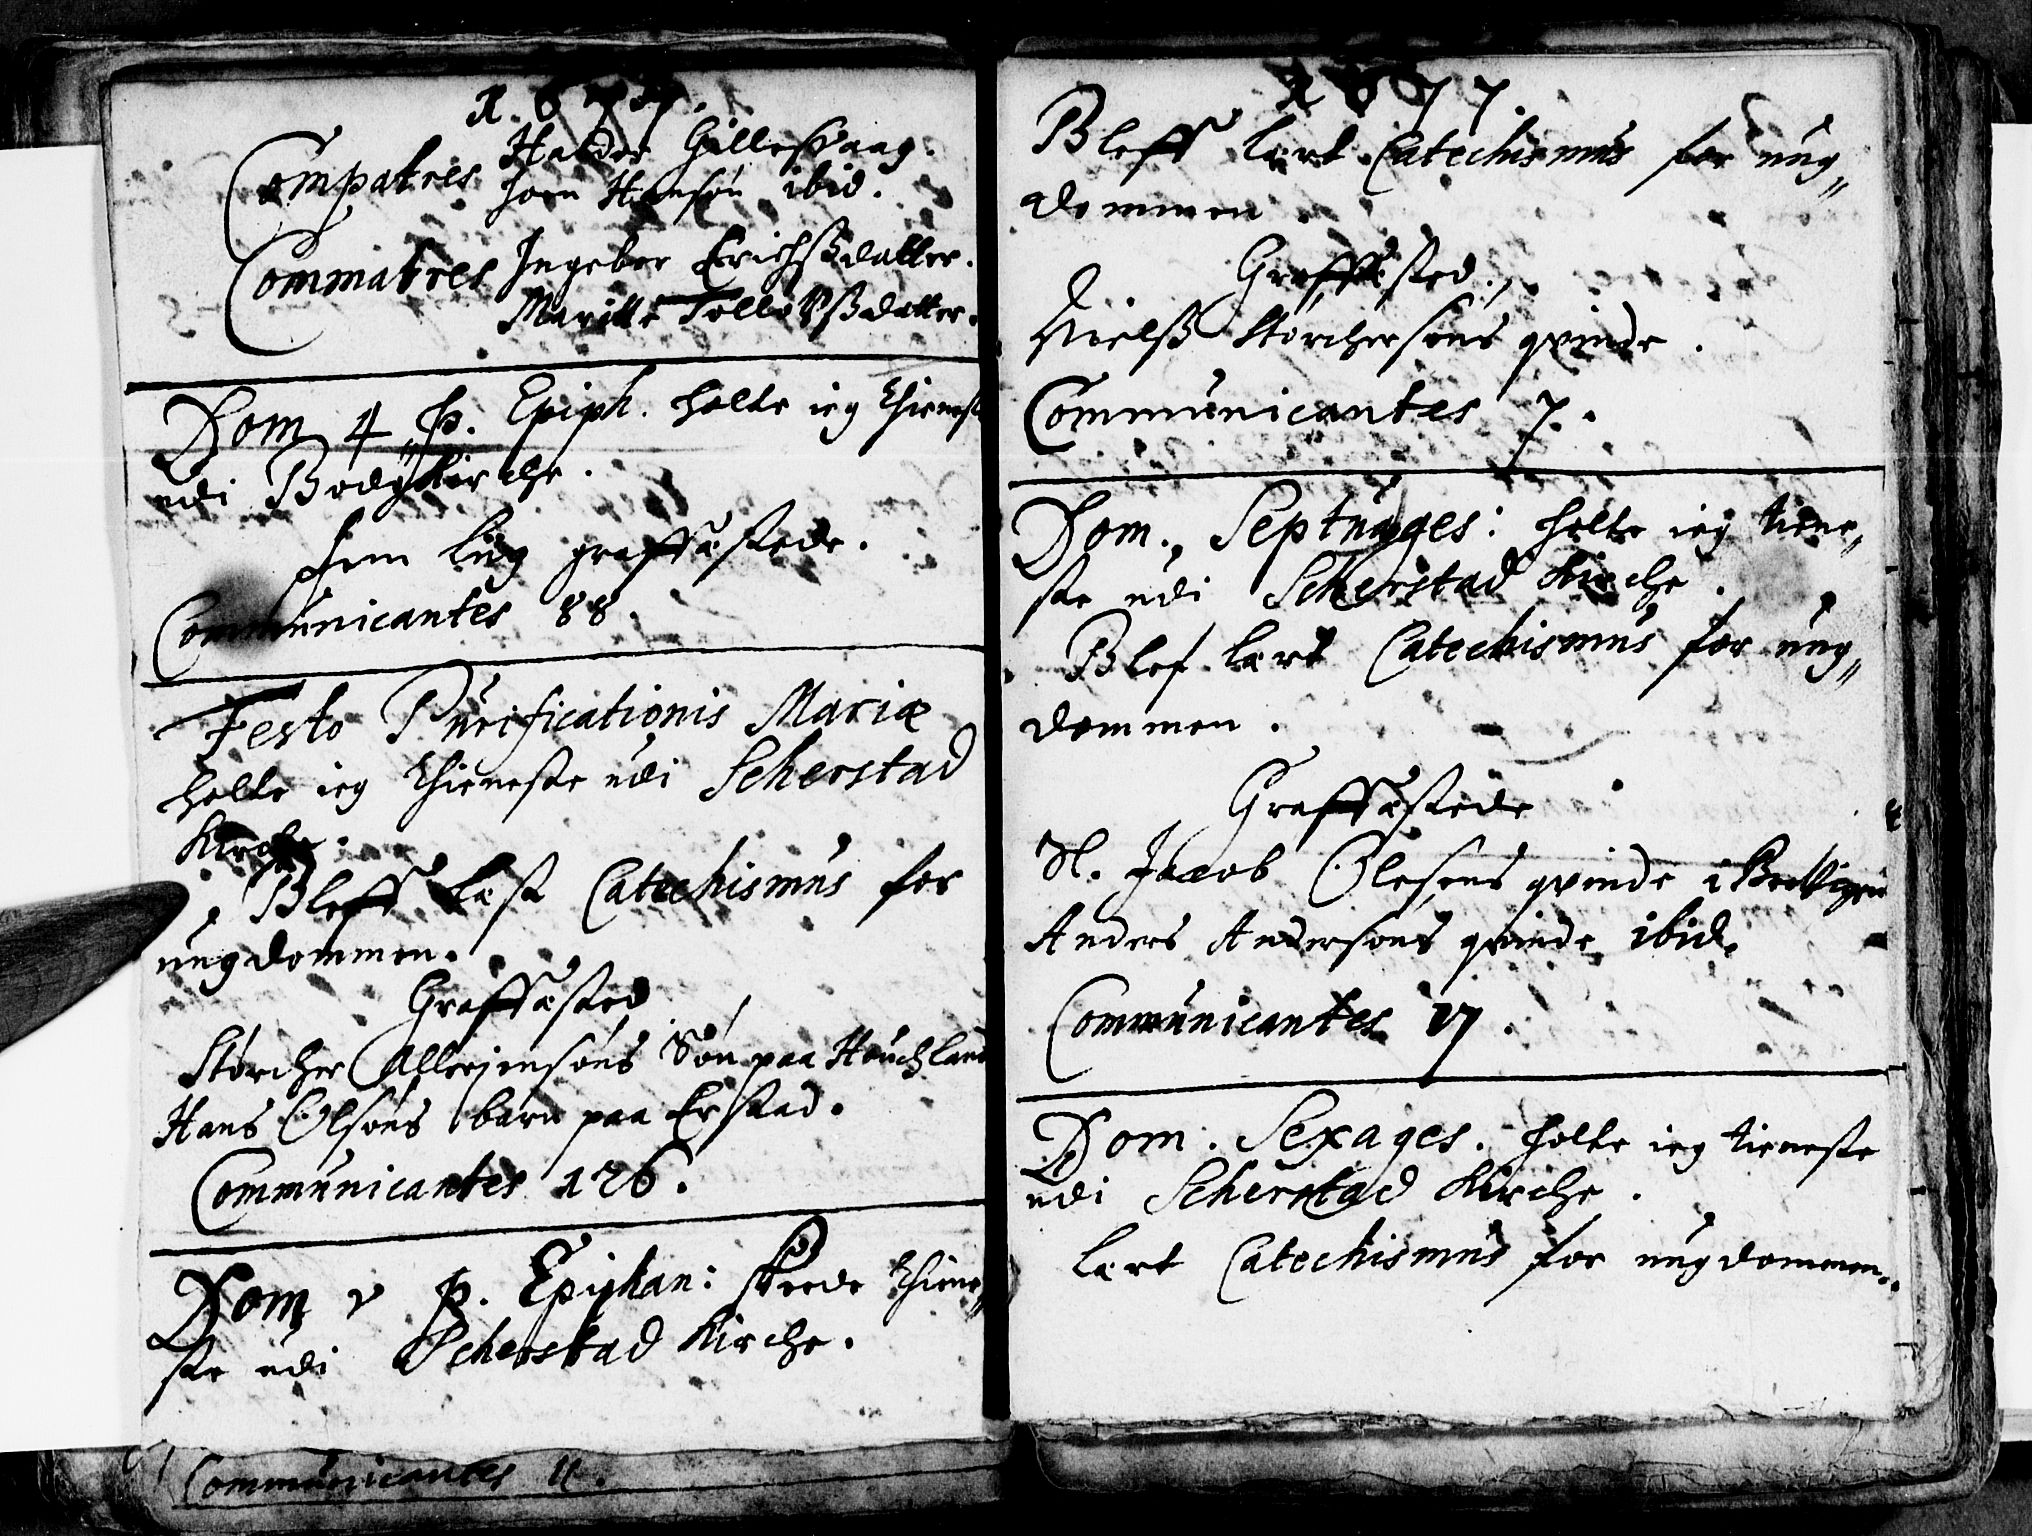 1677.
Compatres Halder Gillesvaag.
Joen Hansøn ibid.
Commatres Ingebor Erichsdatter.
Maritte Tolleffsdatter.
Dom 4 p. Epiph. holte ieg thienest
udi Bodøkirche.
fem liig graffæstede.
Communicantes 88.
Festo Purificationis Mariæ
holte ieg thieneste udi Scherstad
Kirche.
Bleff læst Catechismus for
ungdommen.
Graffæsted
Storcher Allerjensøns Søn paa Houchland
Hans Olsøns barn paa Erstad.
Communicantes 126.
Dom v p. Epiphan: skeede thiene„
ste udi Scherstad Kirche.
Communicantes 11.
1677.
Bleff lært Catechismus for ung„
dommen.
Graffæsted.
Nielss Storchersøns qvinde.
Communicantes 7.
Dom. Septuages: holte ieg tiene„
ste udi Scherstad Kirche.
Blef lært Catechismus for ung„
dommen.
Graffæstede
Sl. Jacob Olesens qvinde i
Anders Andersøns qvinde ibid.
Communicantes 17.
Dom. Sexages. holte ieg tieneste
udi Scherstad Kirche.
lært Catechismus for ungdommen.